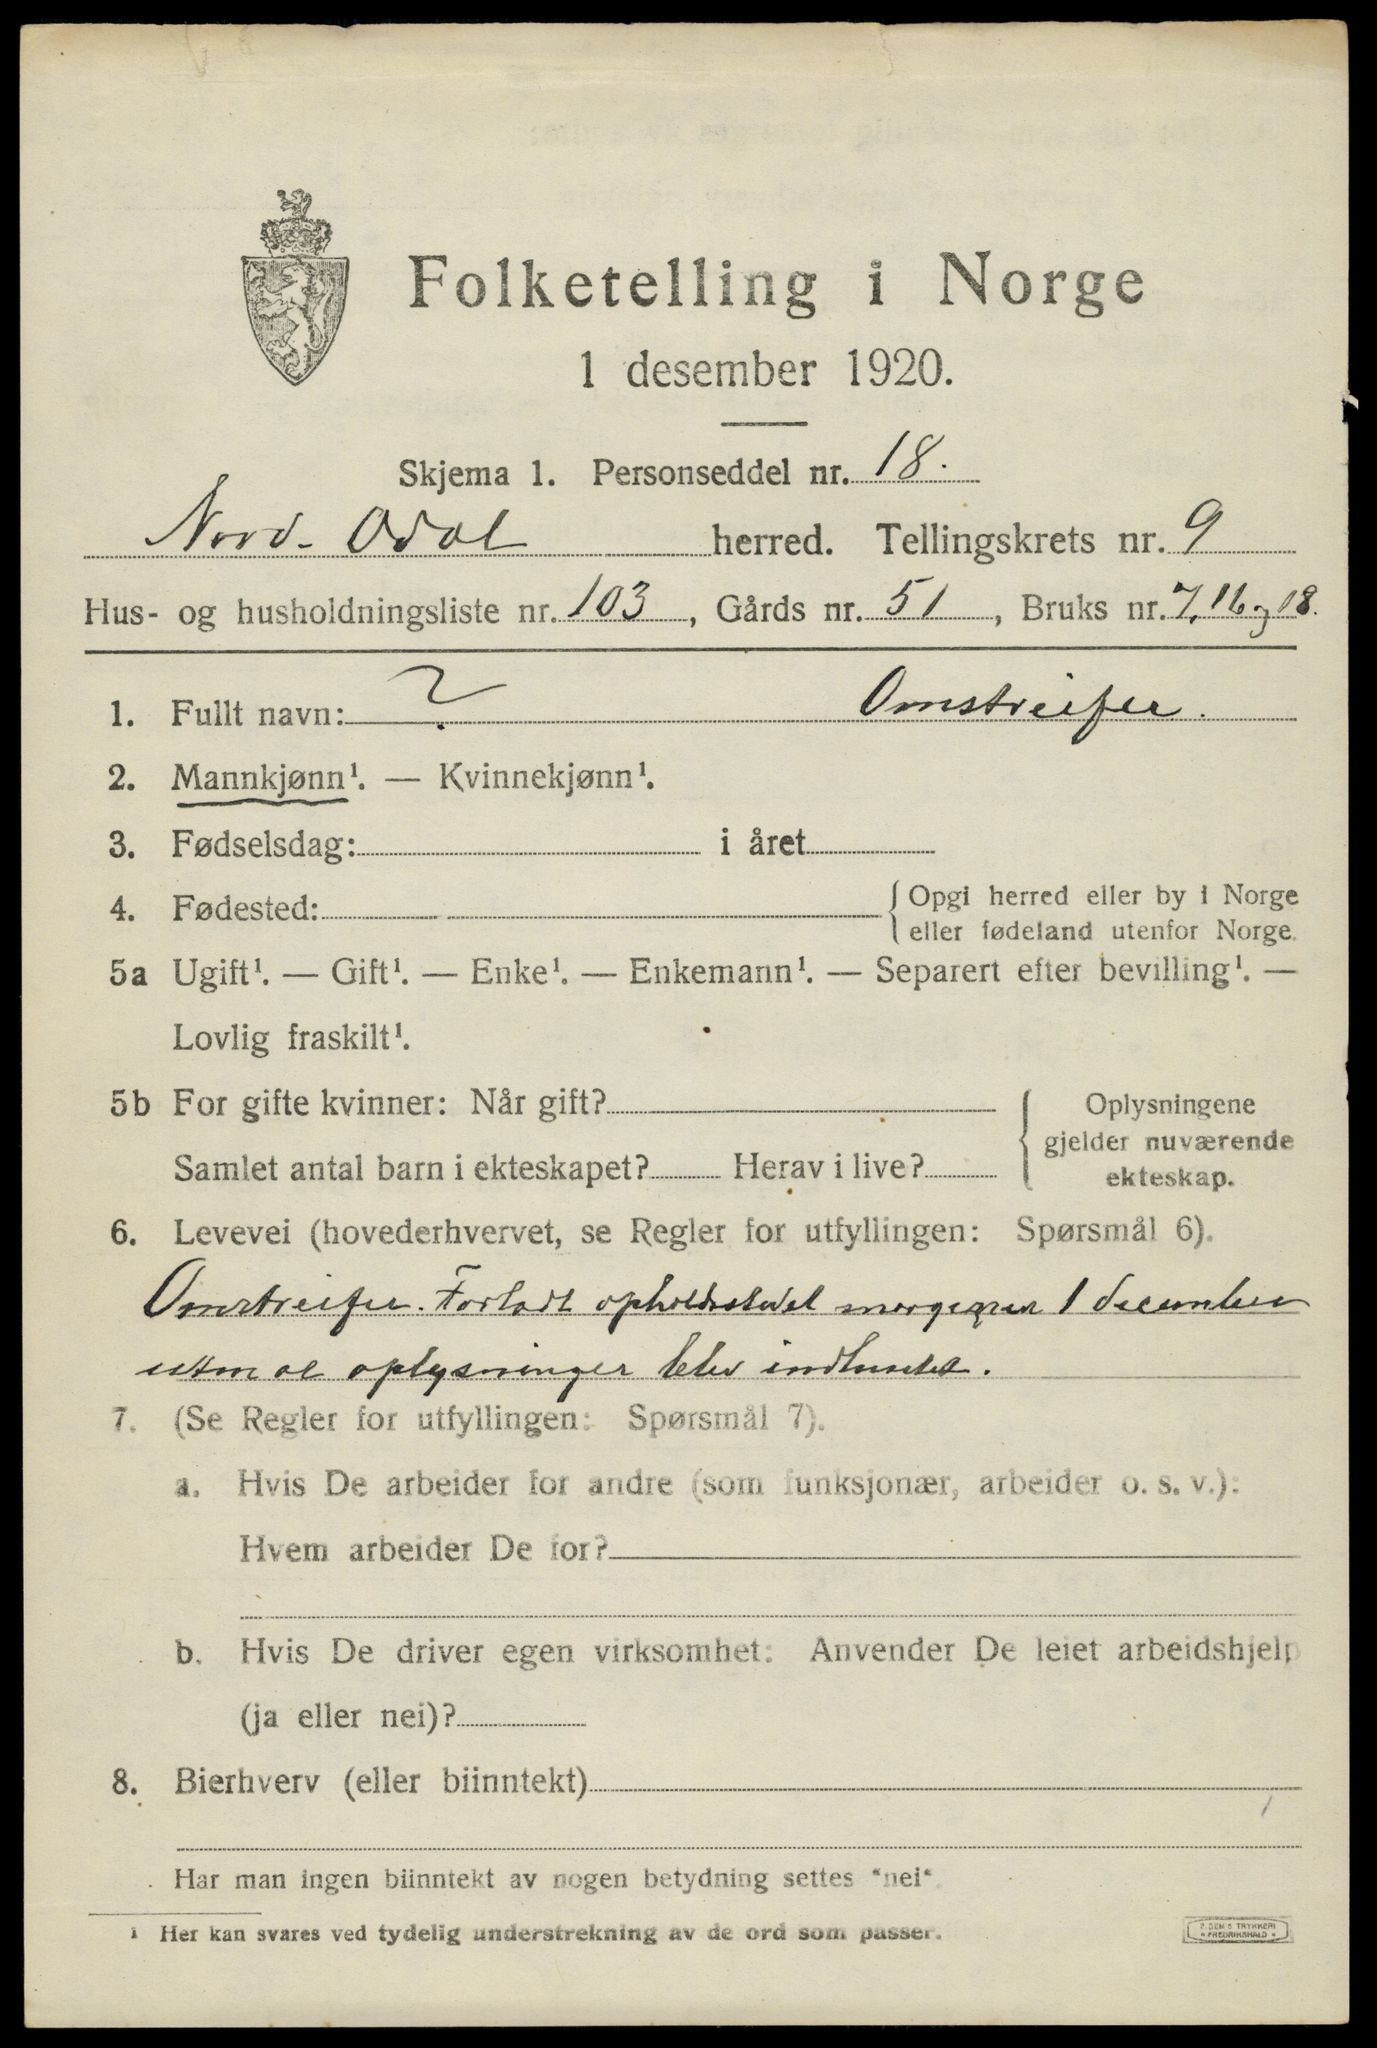 Folketelling i Norge
1 desember 1920.
Skjema 1. Personseddel nr. 18.
Nord-Odal herred. Tellingskrets nr. 9
Hus- og husholdningsliste nr. 103, Gårds nr. 51, Bruks nr. 7, 16 og 18.
1. Fullt navn: ? Omstreifer.
2. Mannkjønn¹. — Kvinnekjønn¹.
3. Fødselsdag: i året
4. Fødested: Opgi herred eller by i Norge
eller fødeland utenfor Norge.
5a Ugift¹. — Gift¹. — Enke¹. — Enkemann¹. — Separert efter bevilling¹. —
Lovlig fraskilt¹.
5b For gifte kvinner: Når gift? Oplysningene
gjelder nuværende
Samlet antal barn i ekteskapet? Herav i live?
ekteskap.
6. Levevei (hovederhvervet, se Regler for utfyllingen: Spørsmål 6).
Omstreifer. Forlodt opholdsstedet morgenen 1 december
uten at oplysninger blev indhentet.
7. (Se Regler for utfyllingen: Spørsmål 7).
a. Hvis De arbeider for andre (som funksjonær, arbeider o. s. v.):
Hvem arbeider De for?
b. Hvis De driver egen virksomhet: Anvender De leiet arbeidshjelp
(ja eller nei)?
8. Bierhverv (eller biinntekt)
Har man ingen biinntekt av nogen betydning settes "nei".
¹ Her kan svares ved tydelig understrekning av de ord som passer.